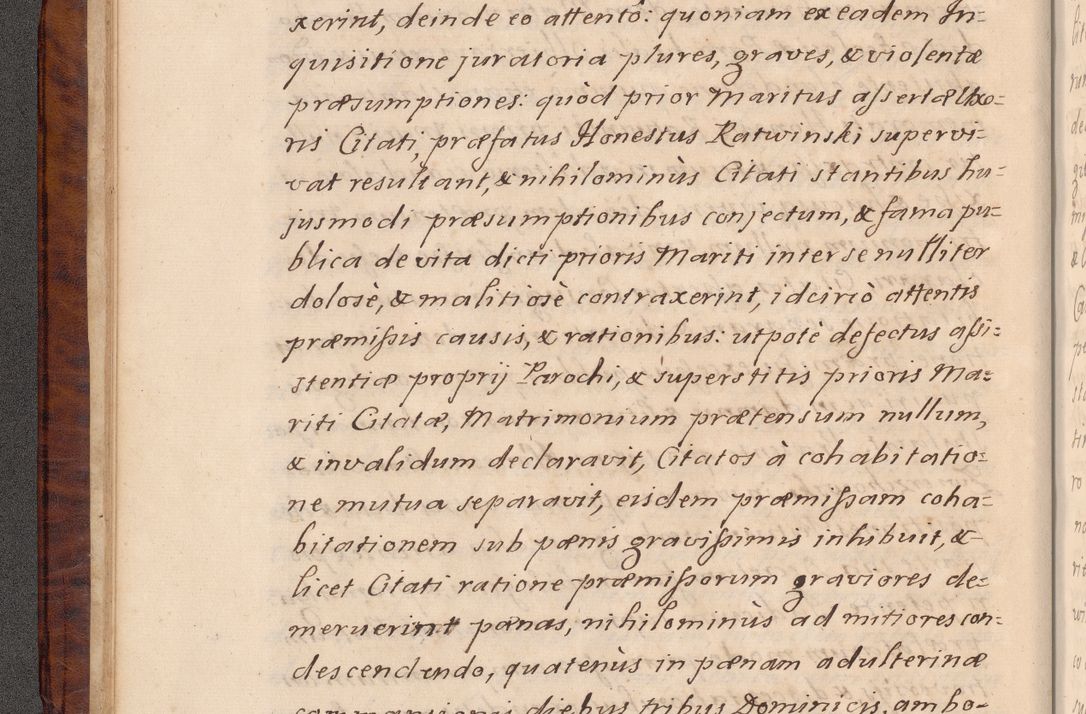 xerint, deinde eo attentô: quoniam ex eadem In=
quisitione juratoria plures, graves, & violentæ
præsumptiones: quòd prior Maritus assertæ Uxo=
ris Citati, præfatus Honestus Ratwinski supervi=
vat resultant, & nihilominùs Citati stantibus hu=
jusmodi præsumptionibus conjectum, & fama pu=
blica de vita dicti prioris Mariti inter se nulliter
dolosè, & malitiosè contraxerint, idcircò attentis
præmissis causis, & rationibus: utpotè defectus assi=
stentiæ proprij Parochi, & superstitis prioris Ma=
riti Citatæ, Matrimonium prætensum nullum,
& invalidum declaravit, Citatos à cohabitatio=
ne mutua separavit, eisdem præmissam coha=
bitationem sub pænis gravissimis inhibuit, &
licet Citati ratione præmissorum graviores de=
meruerint pænas, nihilominùs ad mitiores con=
descendendo, quatenùs in pænam adulterinæ
commansionis diebus tribus Dominicis, ambo=